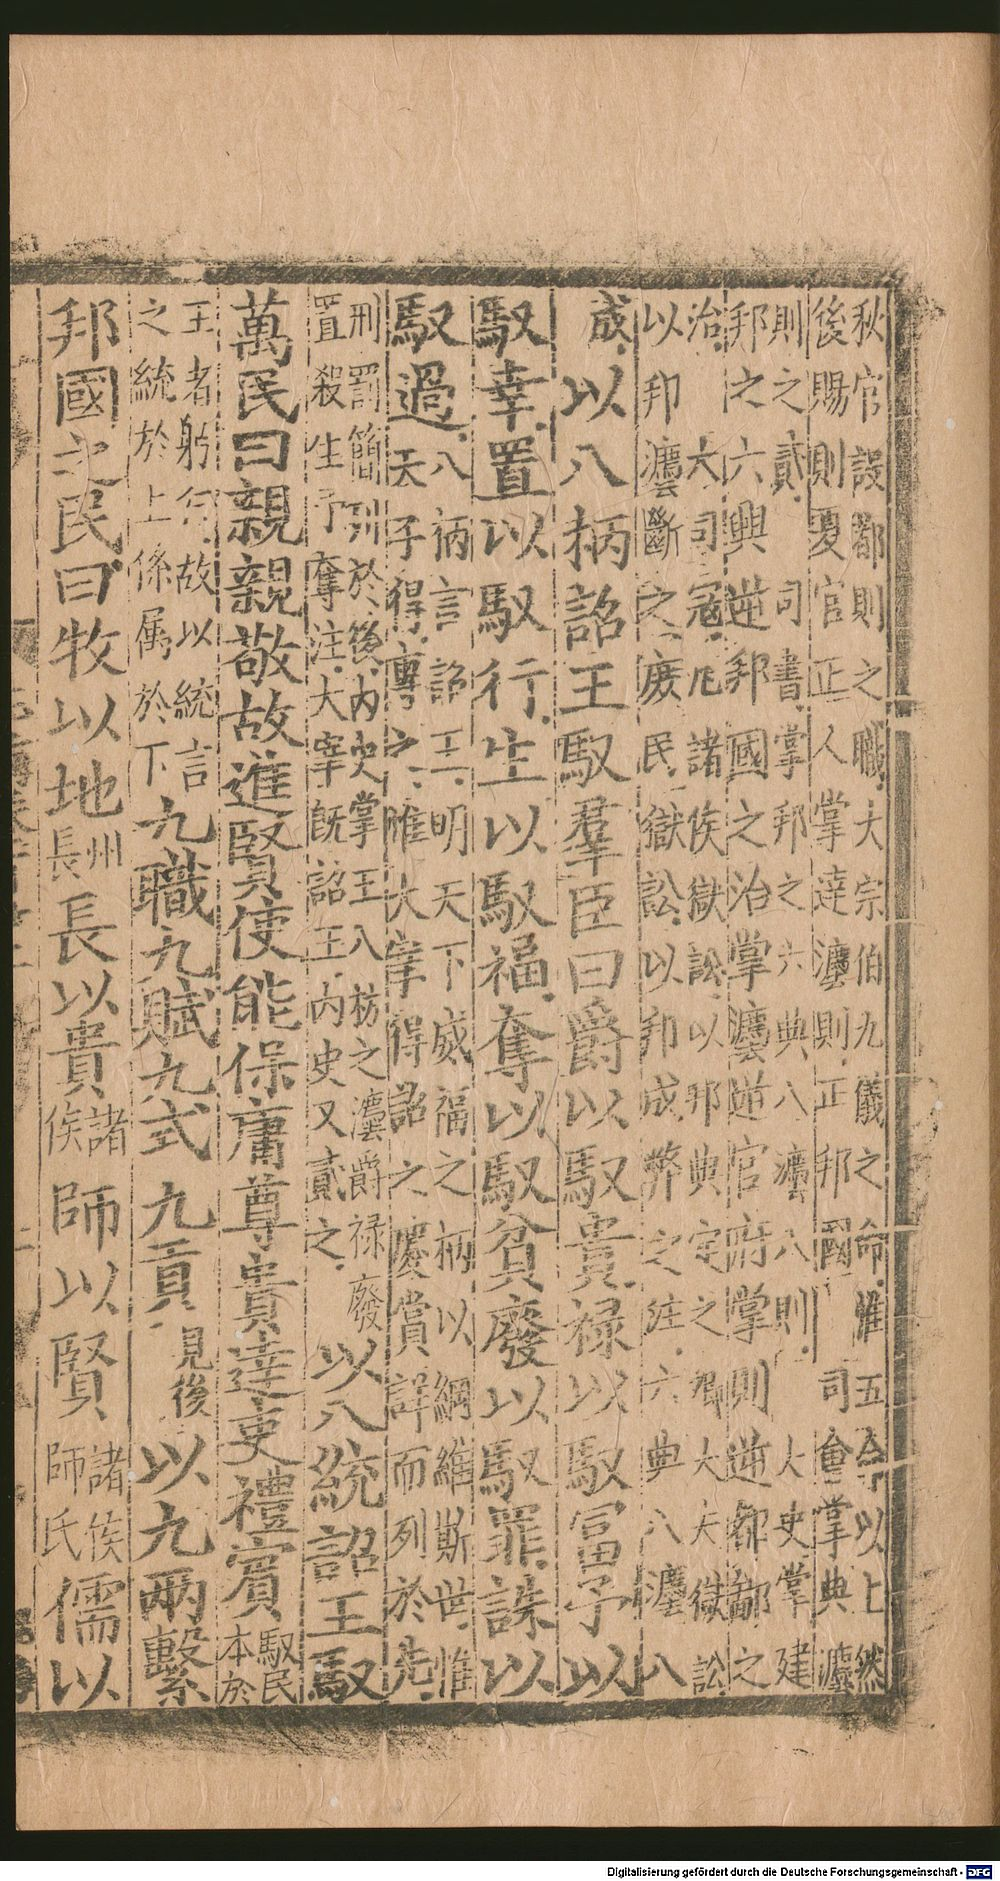 秋官設都則之職大宗伯九儀之命惟五命以上然
後賜則夏官正人掌達灋則正邦國 司會掌典灋
則之貳 司書掌邦之六典八灋八則 大史掌建
邦之六典逆邦國之治掌灋逆官府掌則逆都鄙之
治 大司寇凡諸侯獄訟以邦典定之卿大夫獄訟
以邦灋斷之庶民獄訟以邦成弊之注六典八灋八
成以八柄詔王馭羣臣曰爵以馭貴祿以馭富予以
馭幸置以馭行生以馭福奪以馭貧廢以馭罪誅以
馭過八柄言詔王明天下威福之柄以綱維斯世惟
天子得專之惟大宰得詔之慶賞詳而列於先
刑罰簡列於後內史掌王八枋之灋爵祿廢
置殺生予奪注大宰旣詔王內史又貳之以八統詔王馭
萬民曰親親敬故進賢使能保庸尊貴達吏禮賓馭民本於
王者躬行故以統言
之統於上係属於下九職九賦九式九貢見後以九兩繫
邦國之民曰牧以地州長長以貴諸侯師以賢諸侯師氏儒以
Digitalisierung gefördert durch die Deutsche Forschungsgemeinschaft - DFG